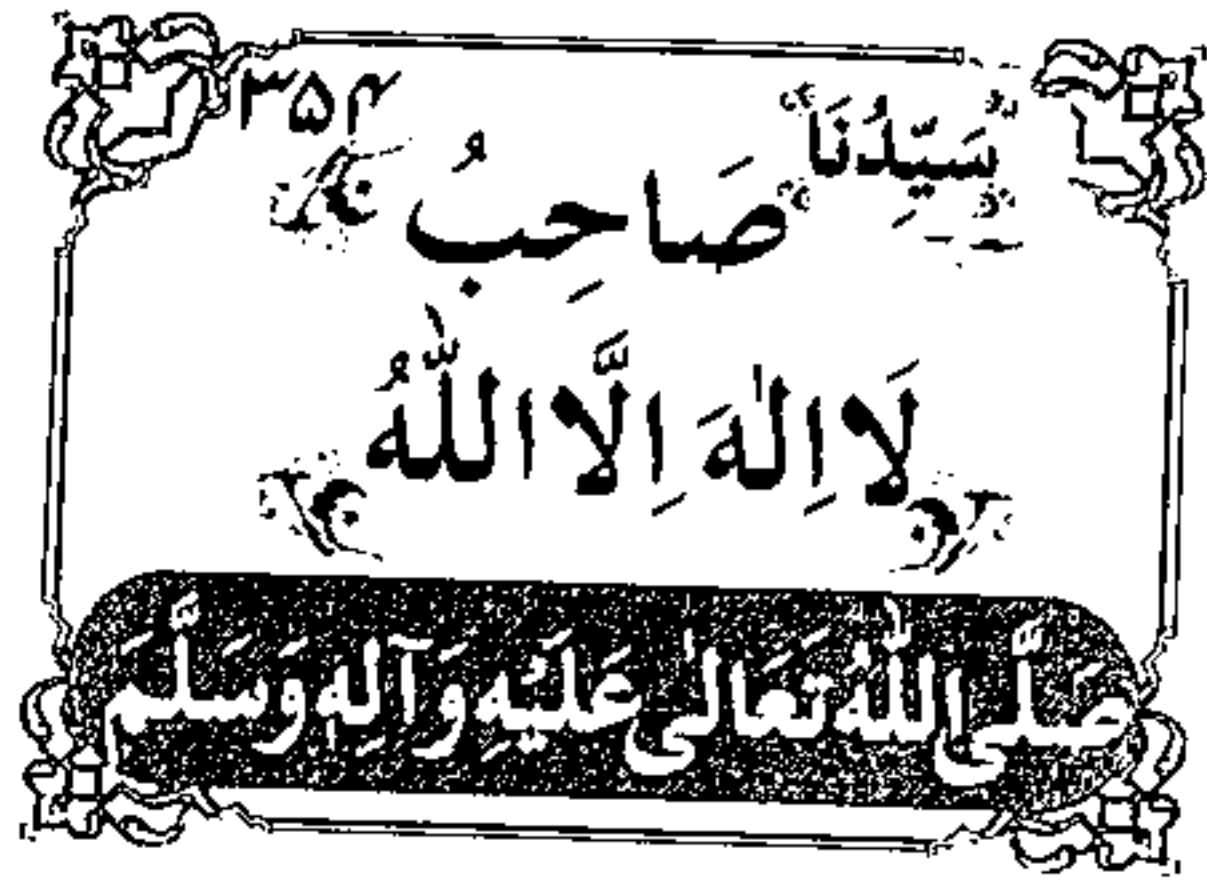 ۳۵۴
سَیِّدُنَا
صَاحِبُ
لَا اِلٰهَ اِلَّا اللّٰهُ
صَلَّی اللّٰهُ تَعَالٰی عَلَیْهِ وَ آلِهٖ وَسَلَّمَ